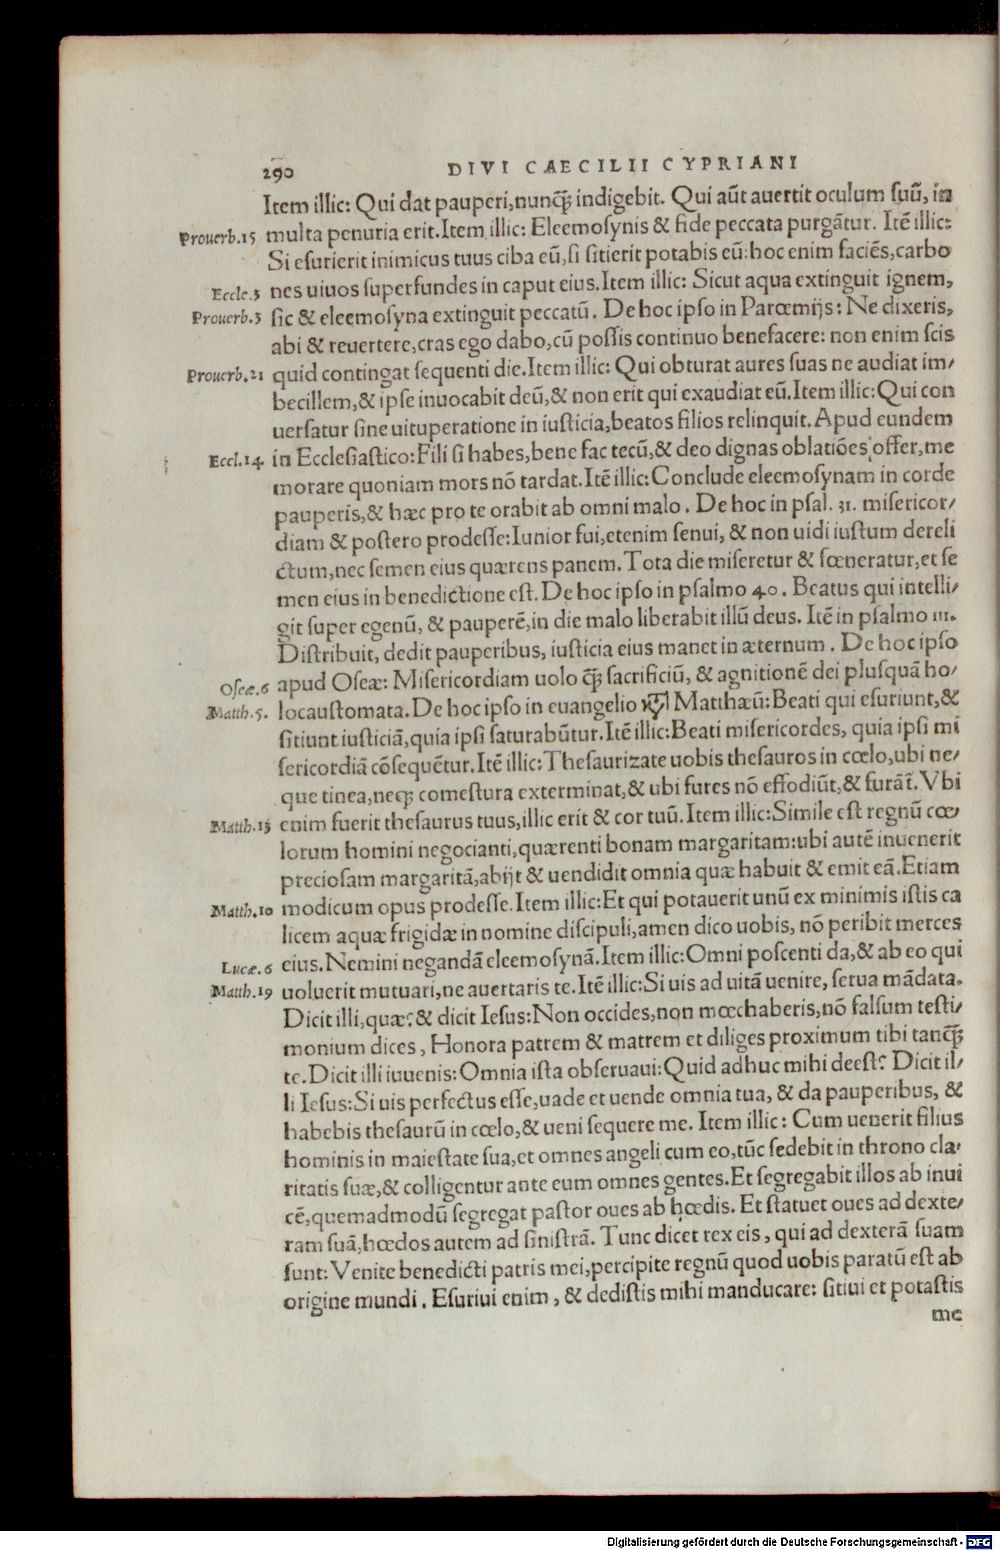 290 DIVI CAECILII CYPRIANI
Item illic: Qui dat pauperi, nunꝙ̃ indigebit. Qui aũt auertit oculum suũ, in
Prouerb.15 multa penuria erit. Item illic: Eleemosynis & fide peccata purgãtur. Itẽ illic:
Si esurierit inimicus tuus ciba eũ, si sitierit potabis eũ: hoc enim faciẽs, carbo
Eccle.3 nes uiuos superfundes in caput eius. Item illic: Sicut aqua extinguit ignem,
Prouerb.3 sic & eleemosyna extinguit peccatũ. De hoc ipso in Parœmijs: Ne dixeris,
abi & reuertere, cras ego dabo, cũ possis continuo benefacere: non enim scis
Prouerb.21 quid contingat sequenti die. Item illic: Qui obturat aures suas ne audiat im/
becillem, & ipse inuocabit deũ, & non erit qui exaudiat eũ. Item illic: Qui con
uersatur sine uituperatione in iusticia, beatos filios relinquit. Apud eundem
Eccl.14. in Ecclesiastico: Fili si habes, bene fac tecũ, & deo dignas oblatiões offer, me
morare quoniam mors nõ tardat. Itẽ illic: Conclude eleemosynam in corde
pauperis, & hæc pro te orabit ab omni malo. De hoc in psal. 31. misericor/
diam & postero prodesse: Iunior fui, etenim senui, & non uidi iustum dereli
ctum, nec semen eius quærens panem. Tota die miseretur & fœneratur, et se
men eius in benedictione est. De hoc ipso in psalmo 40. Beatus qui intelli/
git super egenũ, & pauperẽ, in die malo liberabit illũ deus. Itẽ in psalmo 111.
Distribuit, dedit pauperibus, iusticia eius manet in æternum. De hoc ipso
Oseæ.6 apud Oseæ: Misericordiam uolo ꝙ̃ sacrificiũ, & agnitionẽ dei plusquã ho/
Matth.5. locaustomata. De hoc ipso in euangelio κτ̃ Matthæũ: Beati qui esuriunt, &
sitiunt iusticiã, quia ipsi saturabũtur. Itẽ illic: Beati misericordes, quia ipsi mi
sericordiã cõsequẽtur. Itẽ illic: Thesaurizate uobis thesauros in cœlo, ubi ne/
que tinea, neqꝫ comestura exterminat, & ubi fures nõ effodiũt, & furãt̃. Vbi
Matth.13 enim fuerit thesaurus tuus, illic erit & cor tuũ. Item illic: Simile est regnũ cœ/
lorum homini negocianti, quærenti bonam margaritam: ubi autẽ inuenerit
preciosam margaritã, abijt & uendidit omnia quæ habuit & emit eã. Etiam
Matth.10 modicum opus prodesse. Item illic: Et qui potauerit unũ ex minimis istis ca
licem aquæ frigidæ in nomine discipuli, amen dico uobis, nõ peribit merces
Lucæ.6 eius. Nemini negandã eleemosynã. Item illic: Omni poscenti da, & ab eo qui
Matth.19 uoluerit mutuari, ne auertaris te. Itẽ illic: Si uis ad uitã uenire, serua mãdata.
Dicit illi, quæ? & dicit Iesus: Non occides, non mœchaberis, nõ falsum testi/
monium dices, Honora patrem & matrem et diliges proximum tibi tanꝙ̃
te. Dicit illi iuuenis: Omnia ista obseruaui: Quid adhuc mihi deest? Dicit il/
li Iesus: Si uis perfectus esse, uade et uende omnia tua, & da pauperibus, &
habebis thesaurũ in cœlo, & ueni sequere me. Item illic: Cum uenerit filius
hominis in maiestate sua, et omnes angeli cum eo, tũc sedebit in throno cla/
ritatis suæ, & colligentur ante eum omnes gentes. Et segregabit illos ab inui
cẽ, quemadmodũ segregat pastor oues ab hœdis. Et statuet oues ad dexte/
ram suã, hœdos autem ad sinistrã. Tunc dicet rex eis, qui ad dexterã suam
sunt: Venite benedicti patris mei, percipite regnũ quod uobis paratũ est ab
origine mundi. Esuriui enim, & dedistis mihi manducare: sitiui et potastis
me
Digitalisierung gefördert durch die Deutsche Forschungsgemeinschaft - DFG